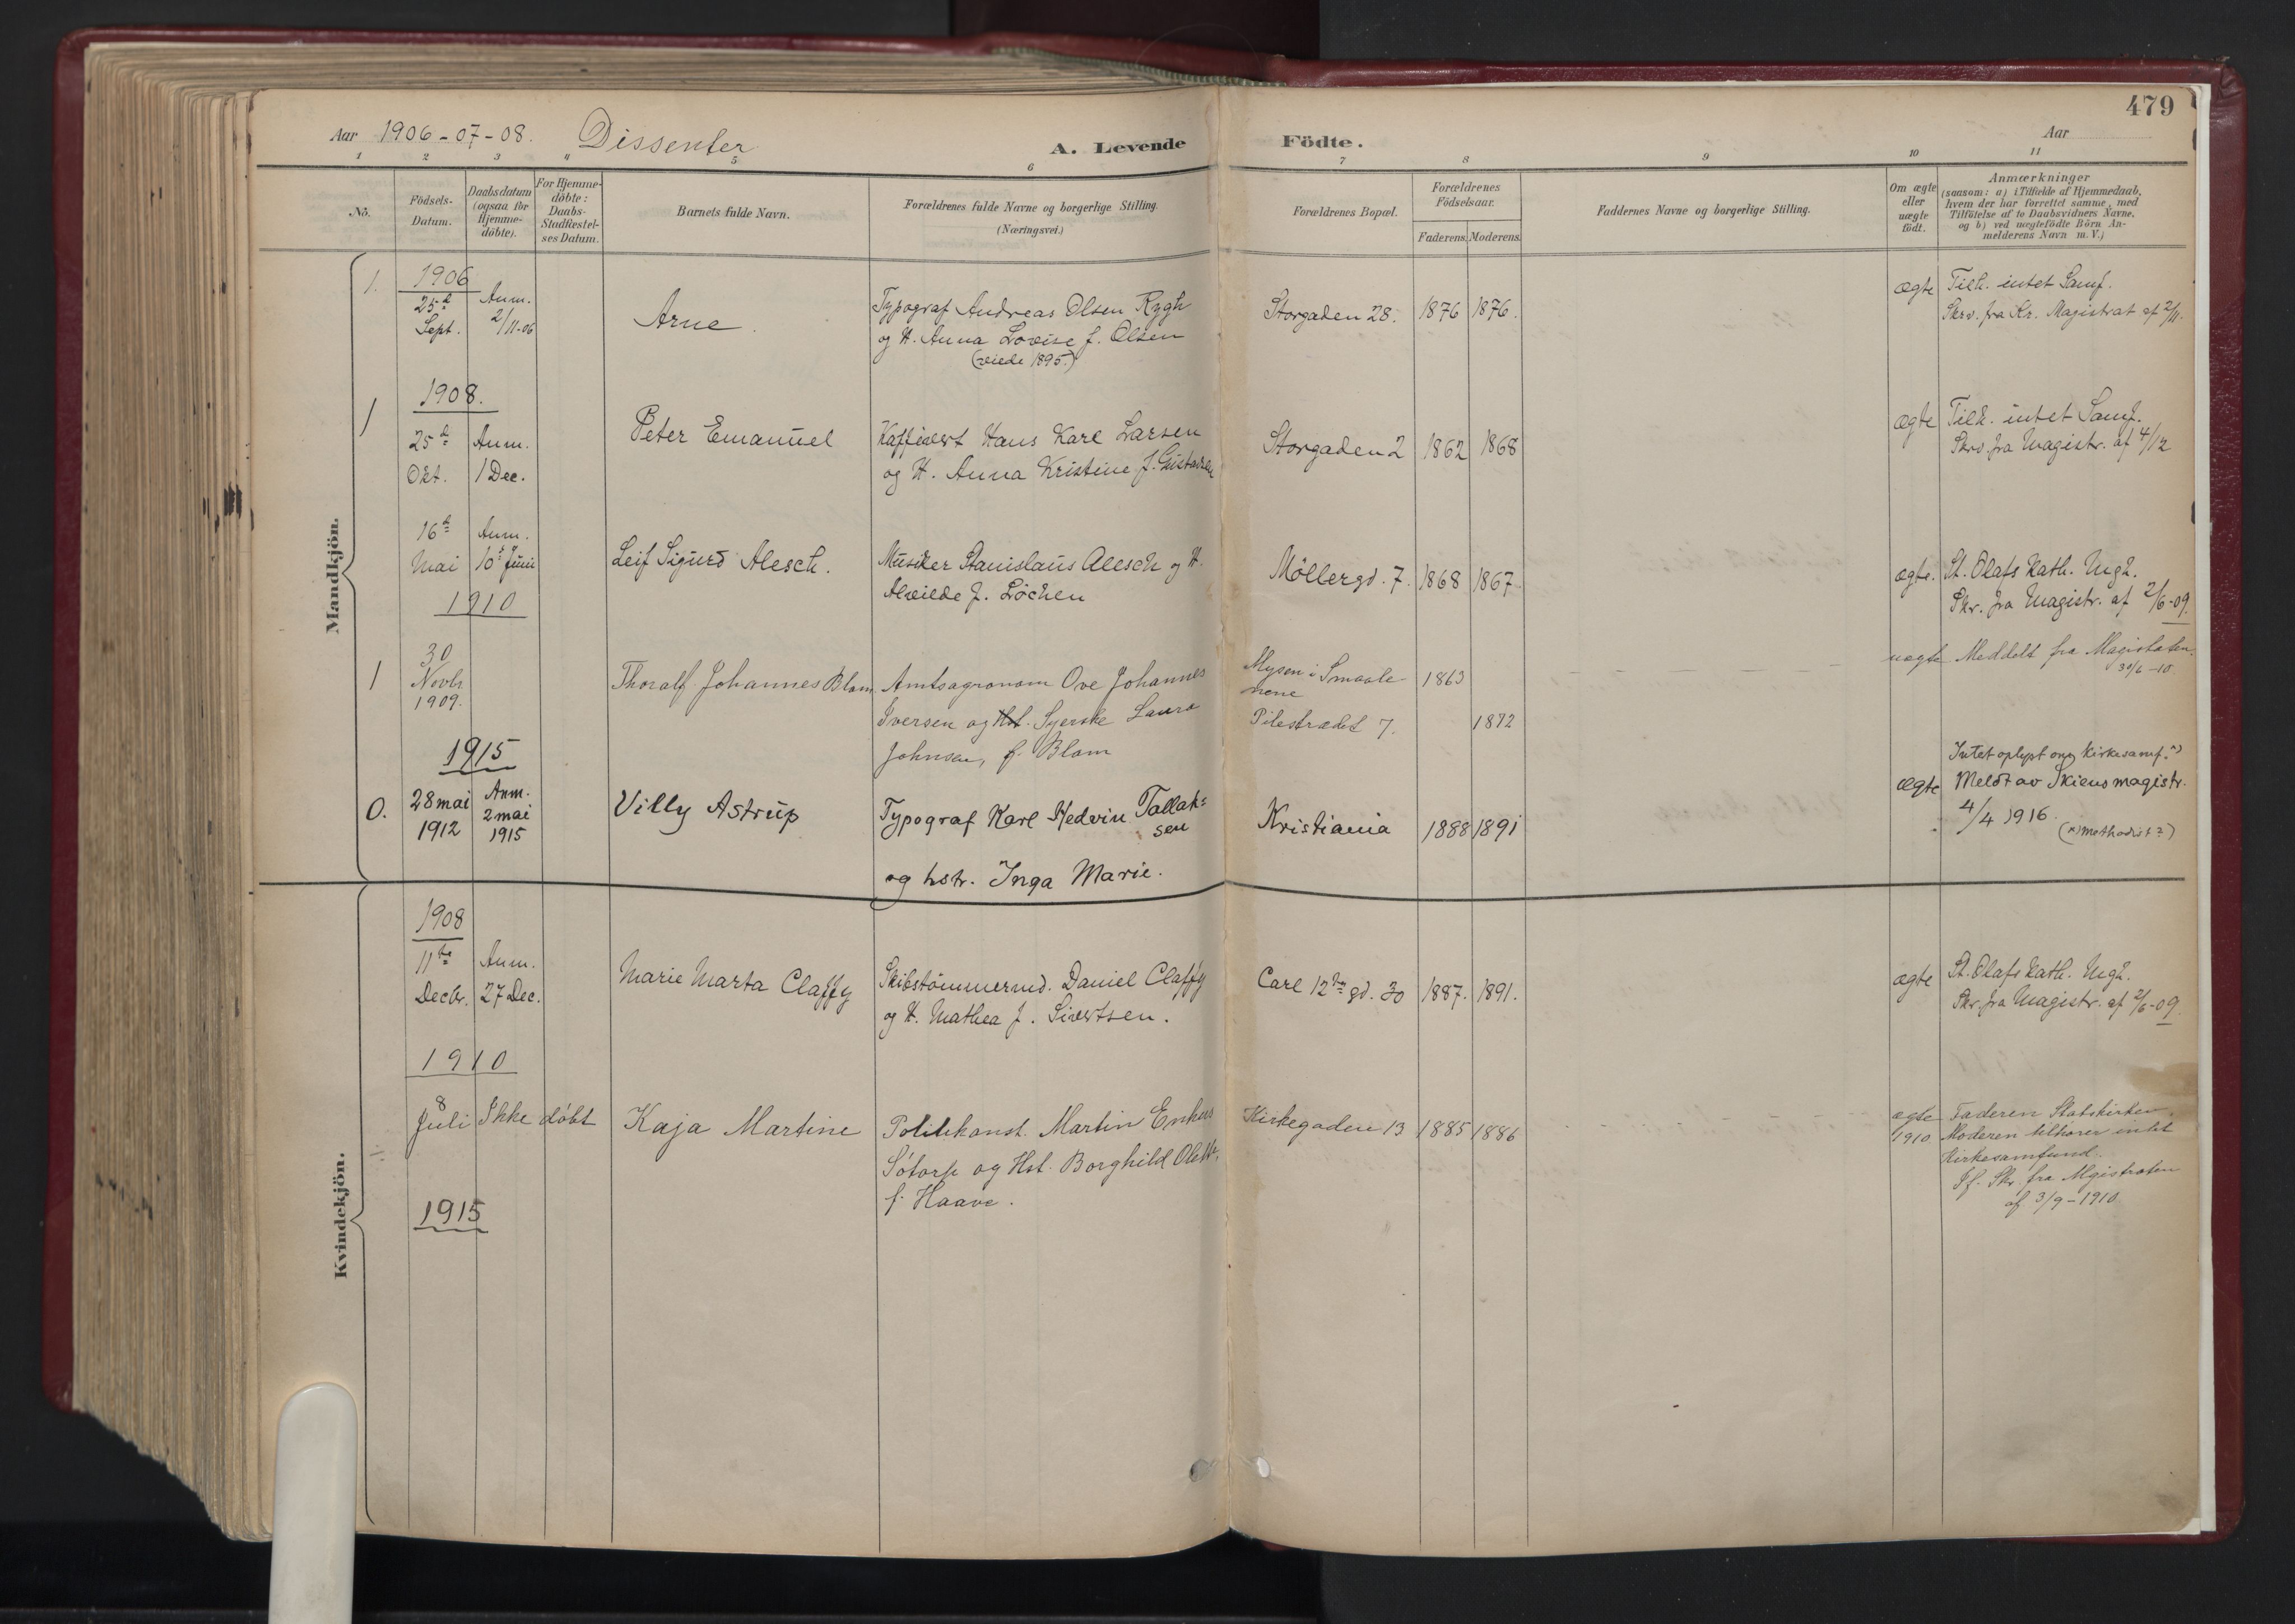 479
Aar 1906-07-08. Dissenter A. Levende Födte. Aar
1 2 3 4 5 6 7 8 9 10 11
No.
Födsels-Datum.
Daabsdatum (ogsaa for Hjemme-döbte).
For Hjemme-döbte: Daabs-Stadfæstel-ses Datum.
Barnets fulde Navn.
Forældrenes fulde Navne og borgerlige Stilling.
(Næringsvei.)
Forældrenes Bopæl.
Forældrenes Födselsaar.
Faderens. Moderens.
Faddernes Navne og borgerlige Stilling.
Om ægte eller uægte födt.
Anmærkninger
(saasom: a) i Tilfælde af Hjemmedaab,
hvem der har forrettet samme, med
Tilföielse af to Daabsvidners Navne,
og b) ved uægtefödte Börn An-
melderens Navn m. V.)
Mandkjön.
1.
1906
25de Sept.
Anm. 2/11-06
Arne.
Typograf Andreas Olsen Rygh
og H. Anna Lovise f. Olsen
(viede 1895.)
Storgaden 28. 1876 1876.
ægte
Tilh. intet Samf.
Skrv. fra Kr. Magistrat af 2/11.
1908.
1
25de Okt.
Anm. 1 Dec.
Peter Emanuel
Kaffivert Hans Karl Larsen
og H. Anna Kristine f.
Storgaden 2 1862 1868
ægte
Tilh. intet Samf.
Skrv. fra Magistr. af 4/12
16de Mai
Anm. 10de Juni
Leif Sigurd Alesch.
Musiker Stanislaus Alesch og H.
Alvilde f. Löchen
Möllergd. 7. 1868 1867
ægte.
St. Olafs Kath. Mgh.
Skr. fra Magistr. af 2/6-09.
1910
1
30 Novbr 1909.
Thoralf Johannes Blom
Amtsagronom Ove Johannes
Iversen og Hst. Syerske Laura
Johnsen, f. Blom
Mysen i Smaale-
nene 1863
Pilestrædet 7. 1872
uægte
Meddelt fra Magistraten
30/6-10.
1915
0.
28 mai 1912
Anm. 2 mai 1915
Villy Astrup
Typograf Karl Hedvin Tallak-
sen
og hstr. Inga Marie.
Kristiania 1888 1891
ægte
Intet oplyst om kirkesamf.x)
Meldt av Skiens magistr.
4/4 1916.
(x) methodist?)
Kvindekjön.
1908
11te Decbr.
Anm. 27 Dec.
Marie Marta Claffy
Skibstömmermd. Daniel Claffy
og H. Mathea f. Sivertsen.
Carl 12tes gd. 30 1887. 1891.
ægte
St. Olafs Kath. Mgh.
Skr. fra Magistr. af 2/6-09.
1910
8 Juli
Ikke döbt
Kaja Martine
Politikonst. Martin
Sötorp og Hst. Borghild
f. Haave.
Kirkegaden 13 1885 1886
ægte
1910
Faderen Statskirken.
Moderen tilhører intet
Kirkesamfund.
Jf. Skr. fra Mgistraten
af 3/9-1910
1915